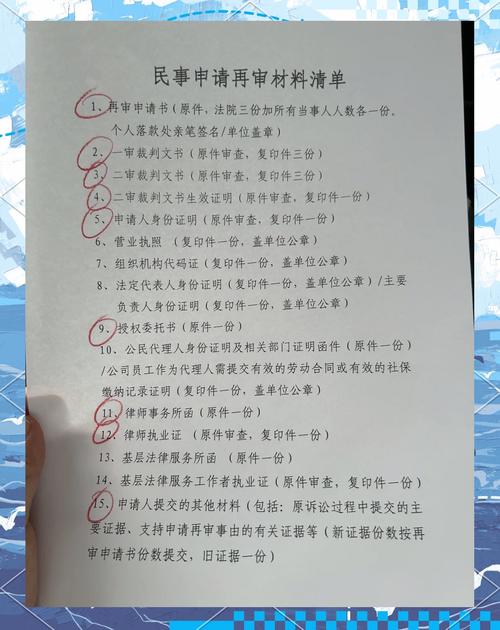 民事申请再审材料清单
1、再审申请书（原件，法院三份加所有当事人人数各一份。
个人落款处亲笔签名/单位盖章）
2、一审裁判文书（原件审查，复印件三份）
3、二审裁判文书（原件审查，复印件三份）
4、二审裁判文书生效证明（原件审查，复印件一份）
5、申请人身份证明（原件审查，复印件一份）
6、营业执照 （复印件一份，盖单位公章）
7、组织机构代码证（复印件一份，盖单位公章）
8、法定代表人身份证明（复印件一份，盖单位公章）/主要
负责人身份证明（复印件一份，盖单位公章）
9、授权委托书（原件一份）
10、公民代理人身份证明及相关部门证明函件（原件一份）
/公司员工作为代理人需提交有效的劳动合同或有效的社保
缴纳记录证明（复印件一份，盖单位公章）
11、律师事务所函（原件一份）
12、律师执业证 （原件审查，复印件一份）
13、基层法律服务所函 （原件一份）
14、基层法律服务工作者执业证（原件审查，复印件一份）
15、申请人提交的其他材料（包括：原诉讼过程中提交的主
要证据、支持申请再审事由的有关证据等（新证据份数按再
审申请书份数提交，旧证据一份）